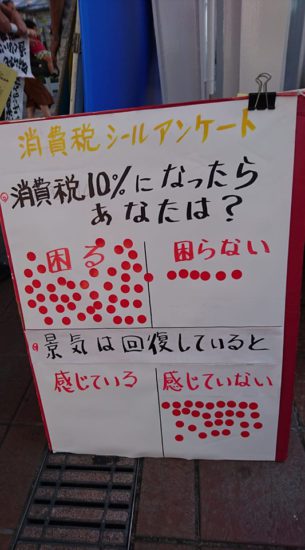 消費税シールアンケート
◎消費税10%になったら
あなたは？
困る 困らない
◎景気は回復していると
感じている 感じていない